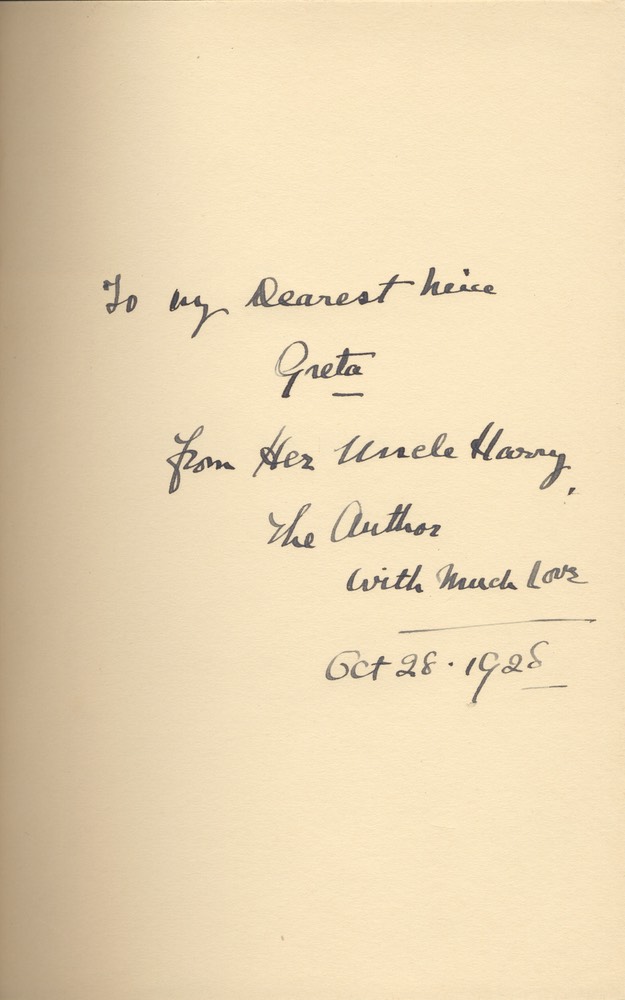 To my Dearest Neice
Greta
from Her Uncle Harry,
The Author
With Much Love
Oct 28. 1928